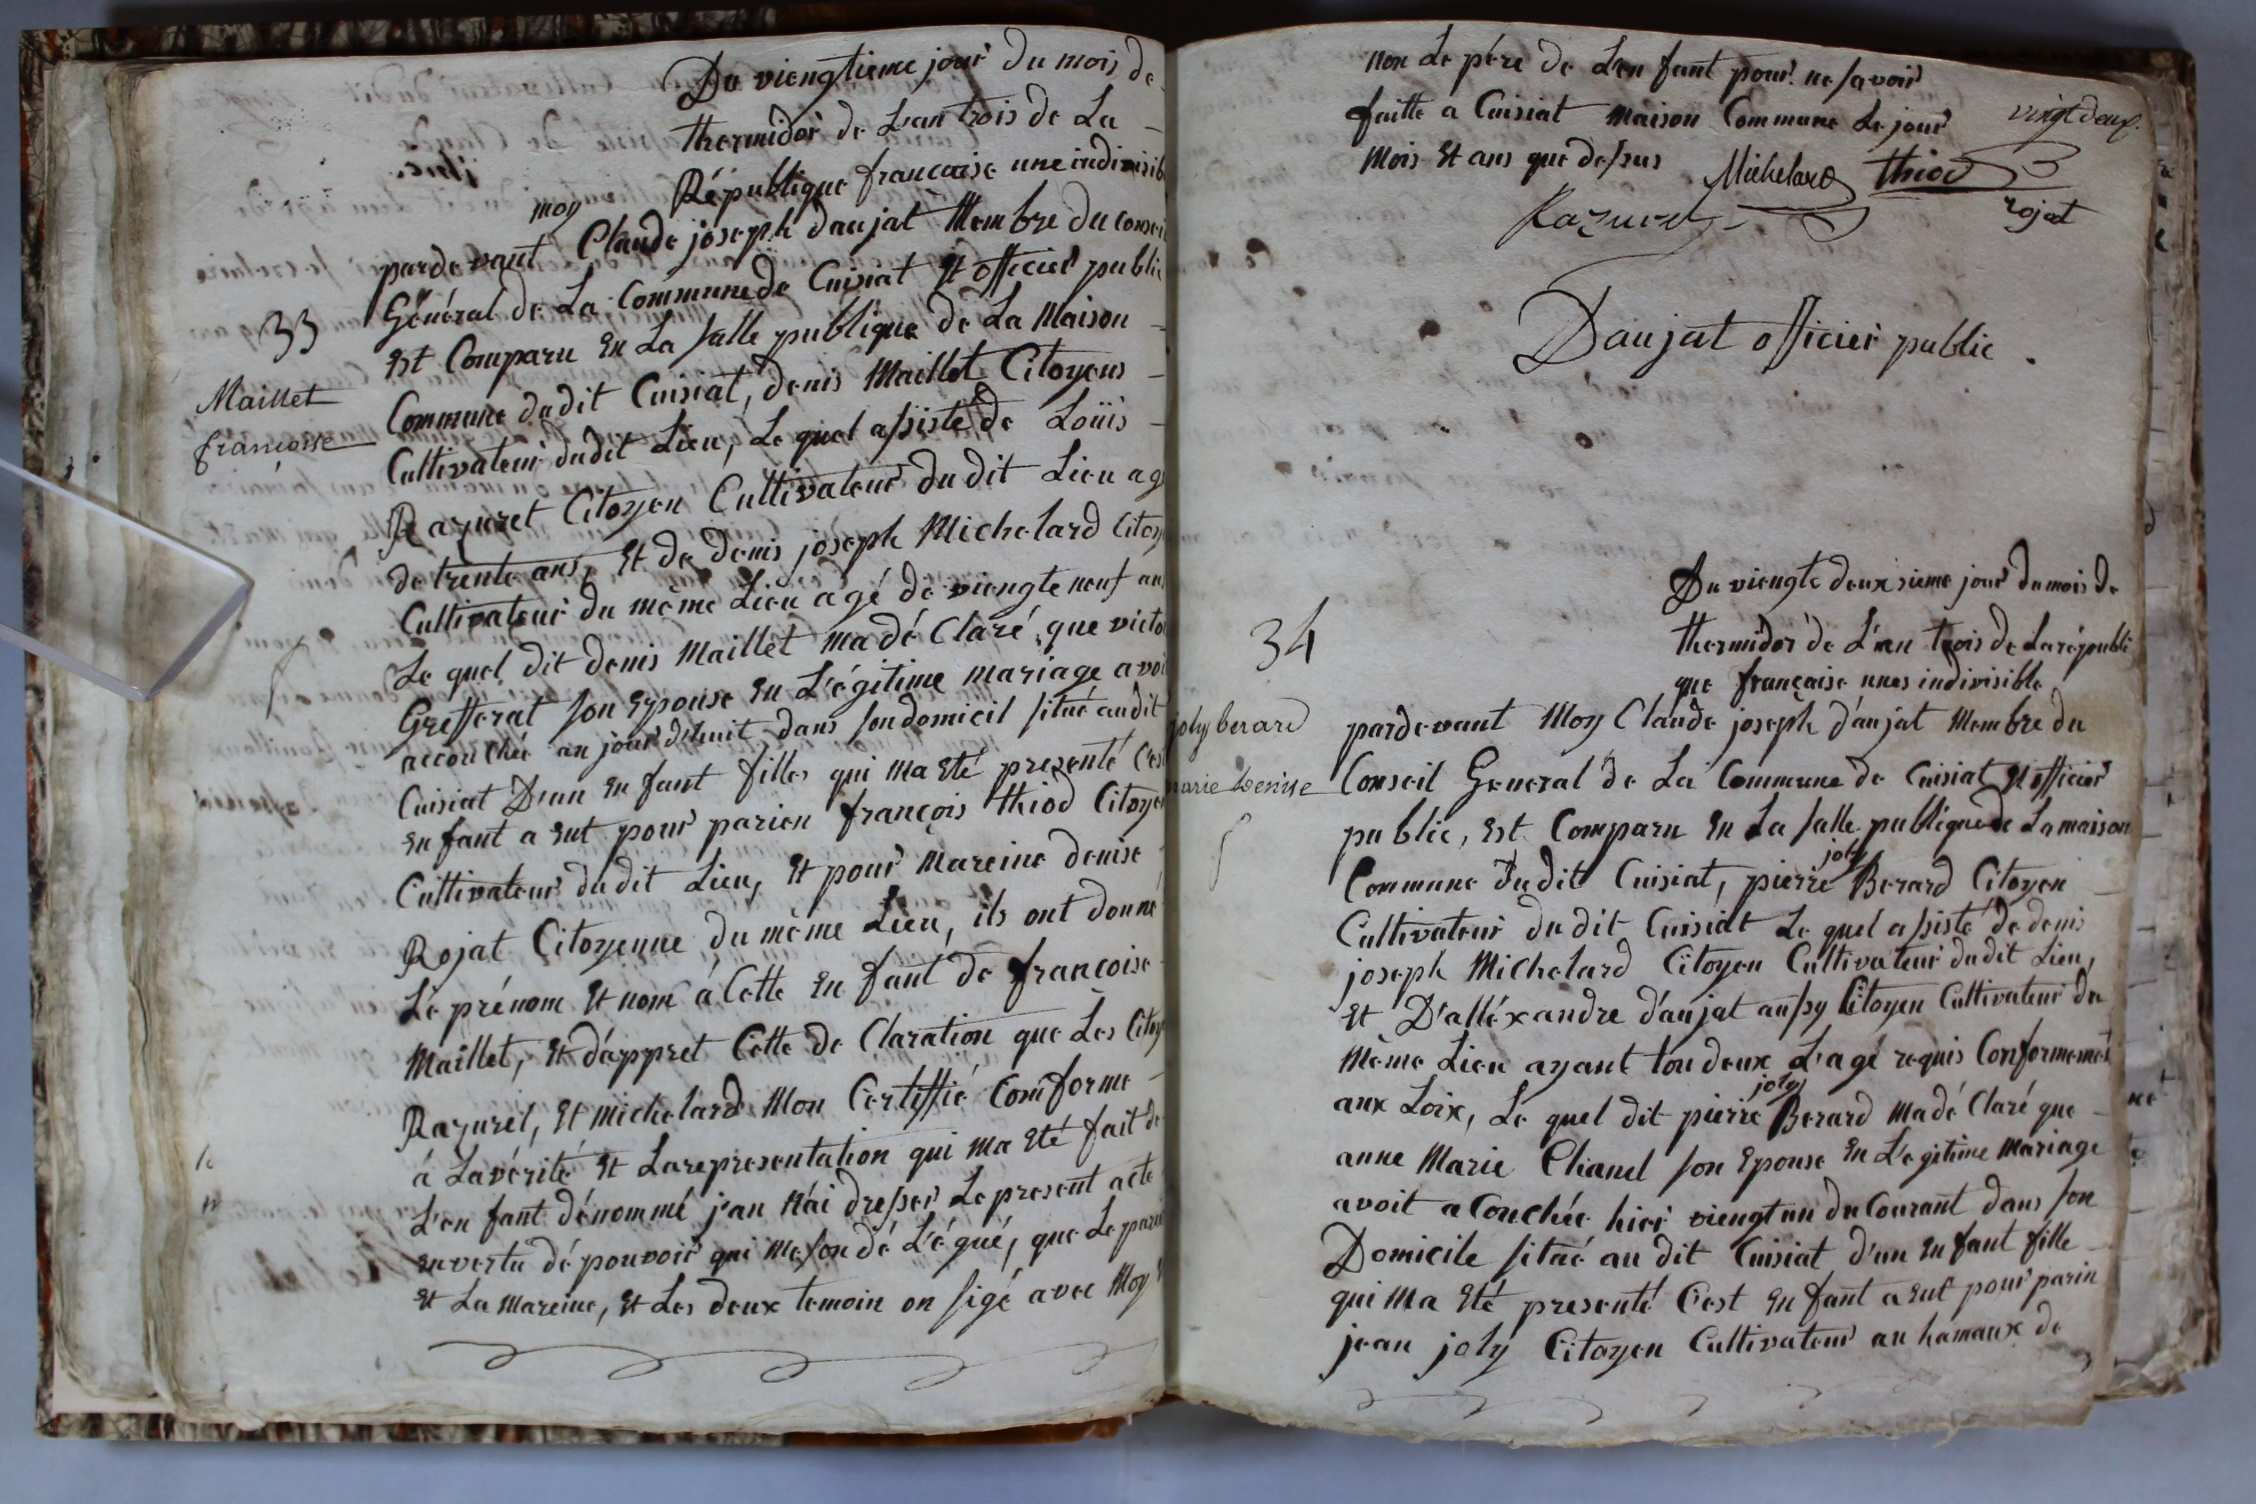 Du viengtieme jour du mois de
thermidor de L'an trois de La
République francaise une indivisib
moy
pardevant Claude joseph daujat Membre du conseil
Général de La Commune de Cuisiat Et officier public
33
Est Comparu En La salle publique de La Maison
Maillet
françoise
Commune dudit Cuisiat, denis Maillet Citoyens
Cultivateur dudit Lieu, Le quel assisté de Loüis
Razuret Citoyen Cultivateur du dit Lieu ag
de trente ans, Et de denis joseph Michelard Citoy
Cultivateur du même Lieu agé de viengte neuf ans
Le quel dit denis Maillet ma dé Claré que victo
Grefferat son Epouse En L'égitime mariage avoi
accouchée au jourd'huit dans son domicil situé audit
Cuisiat D'un En fant filles qui ma Eté presenté C'est
En fant a Eut pour parien françois thiod Citoyen
Cultivateur dudit Lieu, Et pour Mareine denise
Rojat Citoyenne du même Lieu, ils ont donné
Le prénom Et nom á Cette En fant de francoise
Maillet, Et d'appret Cette de Claration que Les Citoy
Razuret, Et Michelard Mon Certiffié Comforme
á Lavérité Et Larepresentation qui ma Eté fait de
L'en fant dénommé j'an Nái dresser Le present acte
En vertu dé pouvoir qui me son dé L'égué, que Le parei
Et La Mareine, Et Les deux temoin on sigé avec Moy
non Le pére de L'en fant pour ne savoir
faitte a Cuisiat Maison Commune Le jour
vingt deux.
Mois Et ans que dessus Michelard thiod
Razuret
rojat
Daujat officier public
Du viengte deuxsieme jour du mois de
34
thermidor de L'en trois de Larépubli
que française unes indivisible
joly berard
pardevant Moy Claude joseph d'aujat Membre du
marie denise
Conseil General de La Commune de Cuisiat Et officier
public, Est Comparu En La salle publique de La maison
joly
Commune dudit Cuisiat, pierre Berard Citoyen
Cultivateur du dit Cuisiat Le quel assisté de denis
joseph Michelard Citoyen Cultivateur dudit Lieu,
Et D'alléxandre d'aujat aussy Citoyen Cultivateur du
Même Lieu ayant tou deux L'agé requis Conformemét
joly
aux Loix, Le quel dit pierre Berard ma dé Claré que
anne Marie Chanel son Epouse En L'egitime Mariage
avoit aConchée hier viengt un du Courant dans son
Domicile situé au dit Cuisiat d'un En fant fille
qui Ma Eté presenté C'est En fant a Eut pour parin
jean joly Citoyen Cultivateur au hamaux de